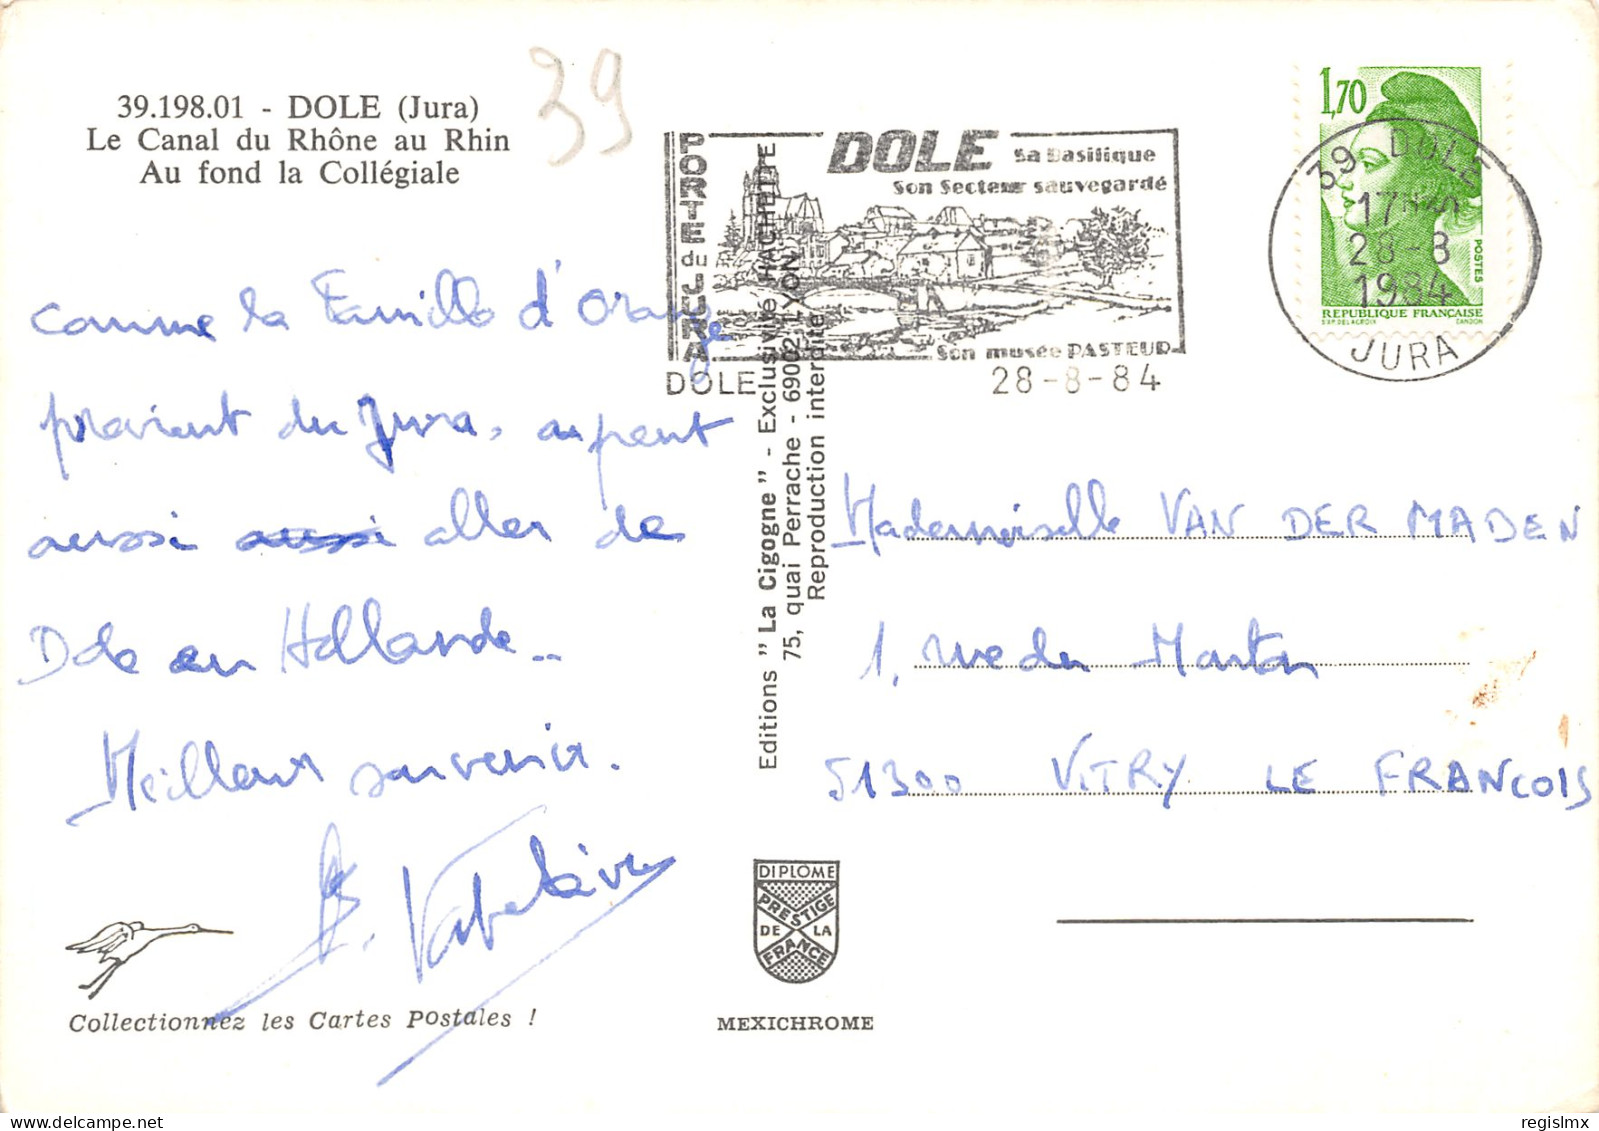 39.198.01 - DOLE (Jura)
Le Canal du Rhône au Rhin
Au fond la Collégiale
39
comme la Famille d'Orange
provient du Jura, on peut
aussi aussi aller de
Dole en Hollande...
Meilleur souvenir.
Collectionnez les Cartes Postales !
PORTE du JURA
DOLE
Sa Basilique
Son Secteur sauvegardé
Son musée PASTEUR
DOLE 28-8-84
Editions "La Cigogne" - Exclusivité HACHETTE
75, quai Perrache - 69002 LYON
Reproduction interdite
1,70
POSTES
REPUBLIQUE FRANÇAISE
D'AP. DELACROIX GANDON
39 DOLE
17H
28-8
1984
JURA
Mademoiselle VAN DER MADEN
1, rue du
51300 VITRY LE FRANCOIS
DIPLOME
PRESTIGE
DE LA
FRANCE
MEXICHROME
regislmx